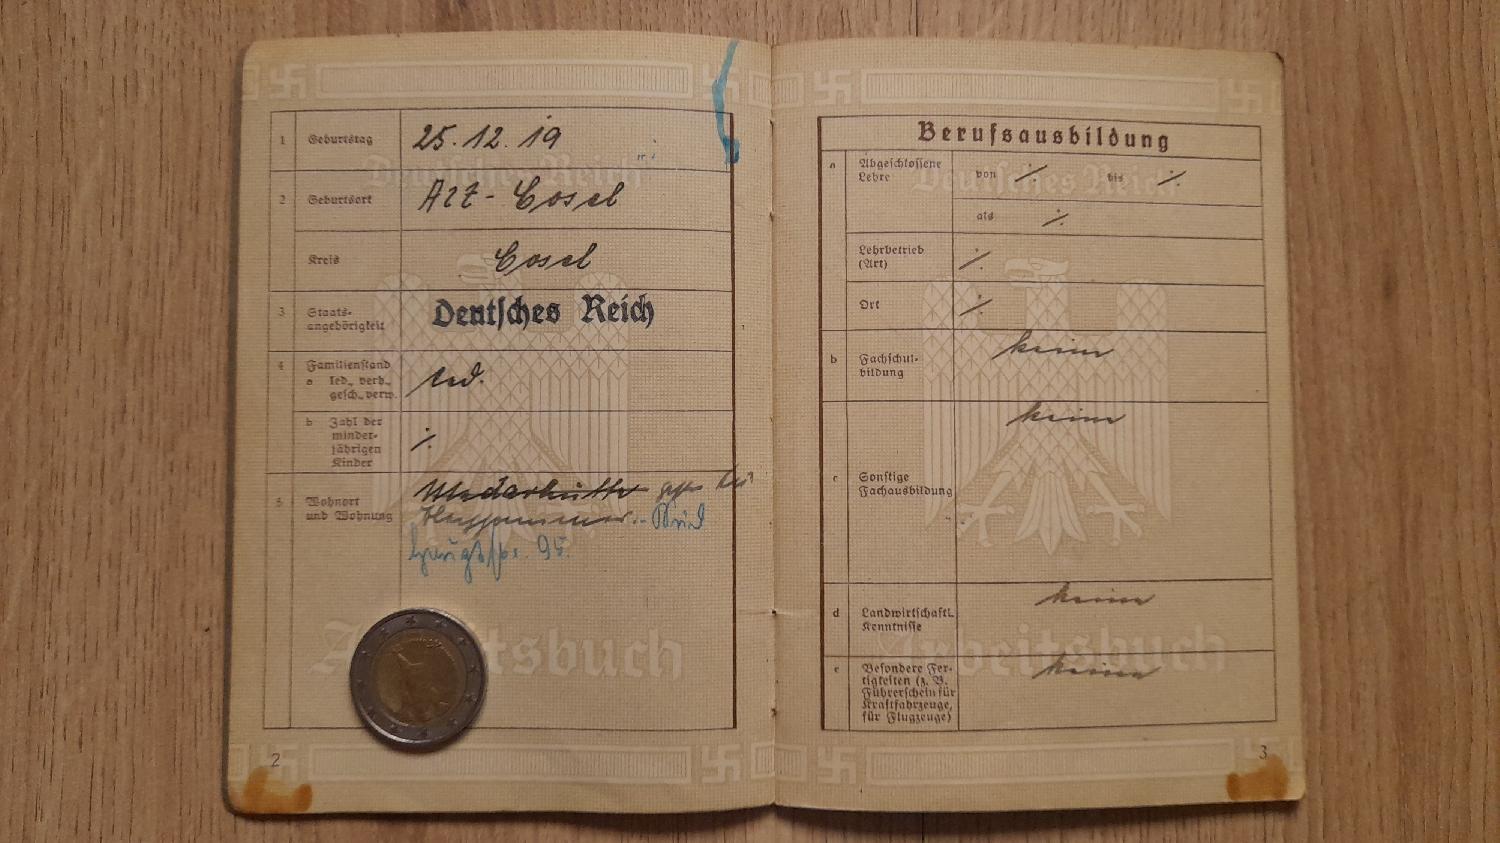 1 Geburtstag 25.12.19
2 Geburtsort Alt-Cosel
Kreis Cosel
3 Staats-
angehörigkeit Deutsches Reich
4 Familienstand
a led., verh.,
gesch., verw. led.
b Zahl der
minder-
jährigen
Kinder ./.
5 Wohnort
und Wohnung
95.
Deutsches Reich
Arbeitsbuch
2
Berufsausbildung
a Abgeschlossene
Lehre von ./. bis ./.
als ./.
Lehrbetrieb
(Art) ./.
Ort ./.
b Fachschul-
bildung keine
c Sonstige
Fachausbildung keine
d Landwirtschaftl.
Kenntnisse keine
e Besondere Fer-
tigkeiten (z. B.
Führerschein für
Kraftfahrzeuge,
für Flugzeuge) keine
Deutsches Reich
Arbeitsbuch
3